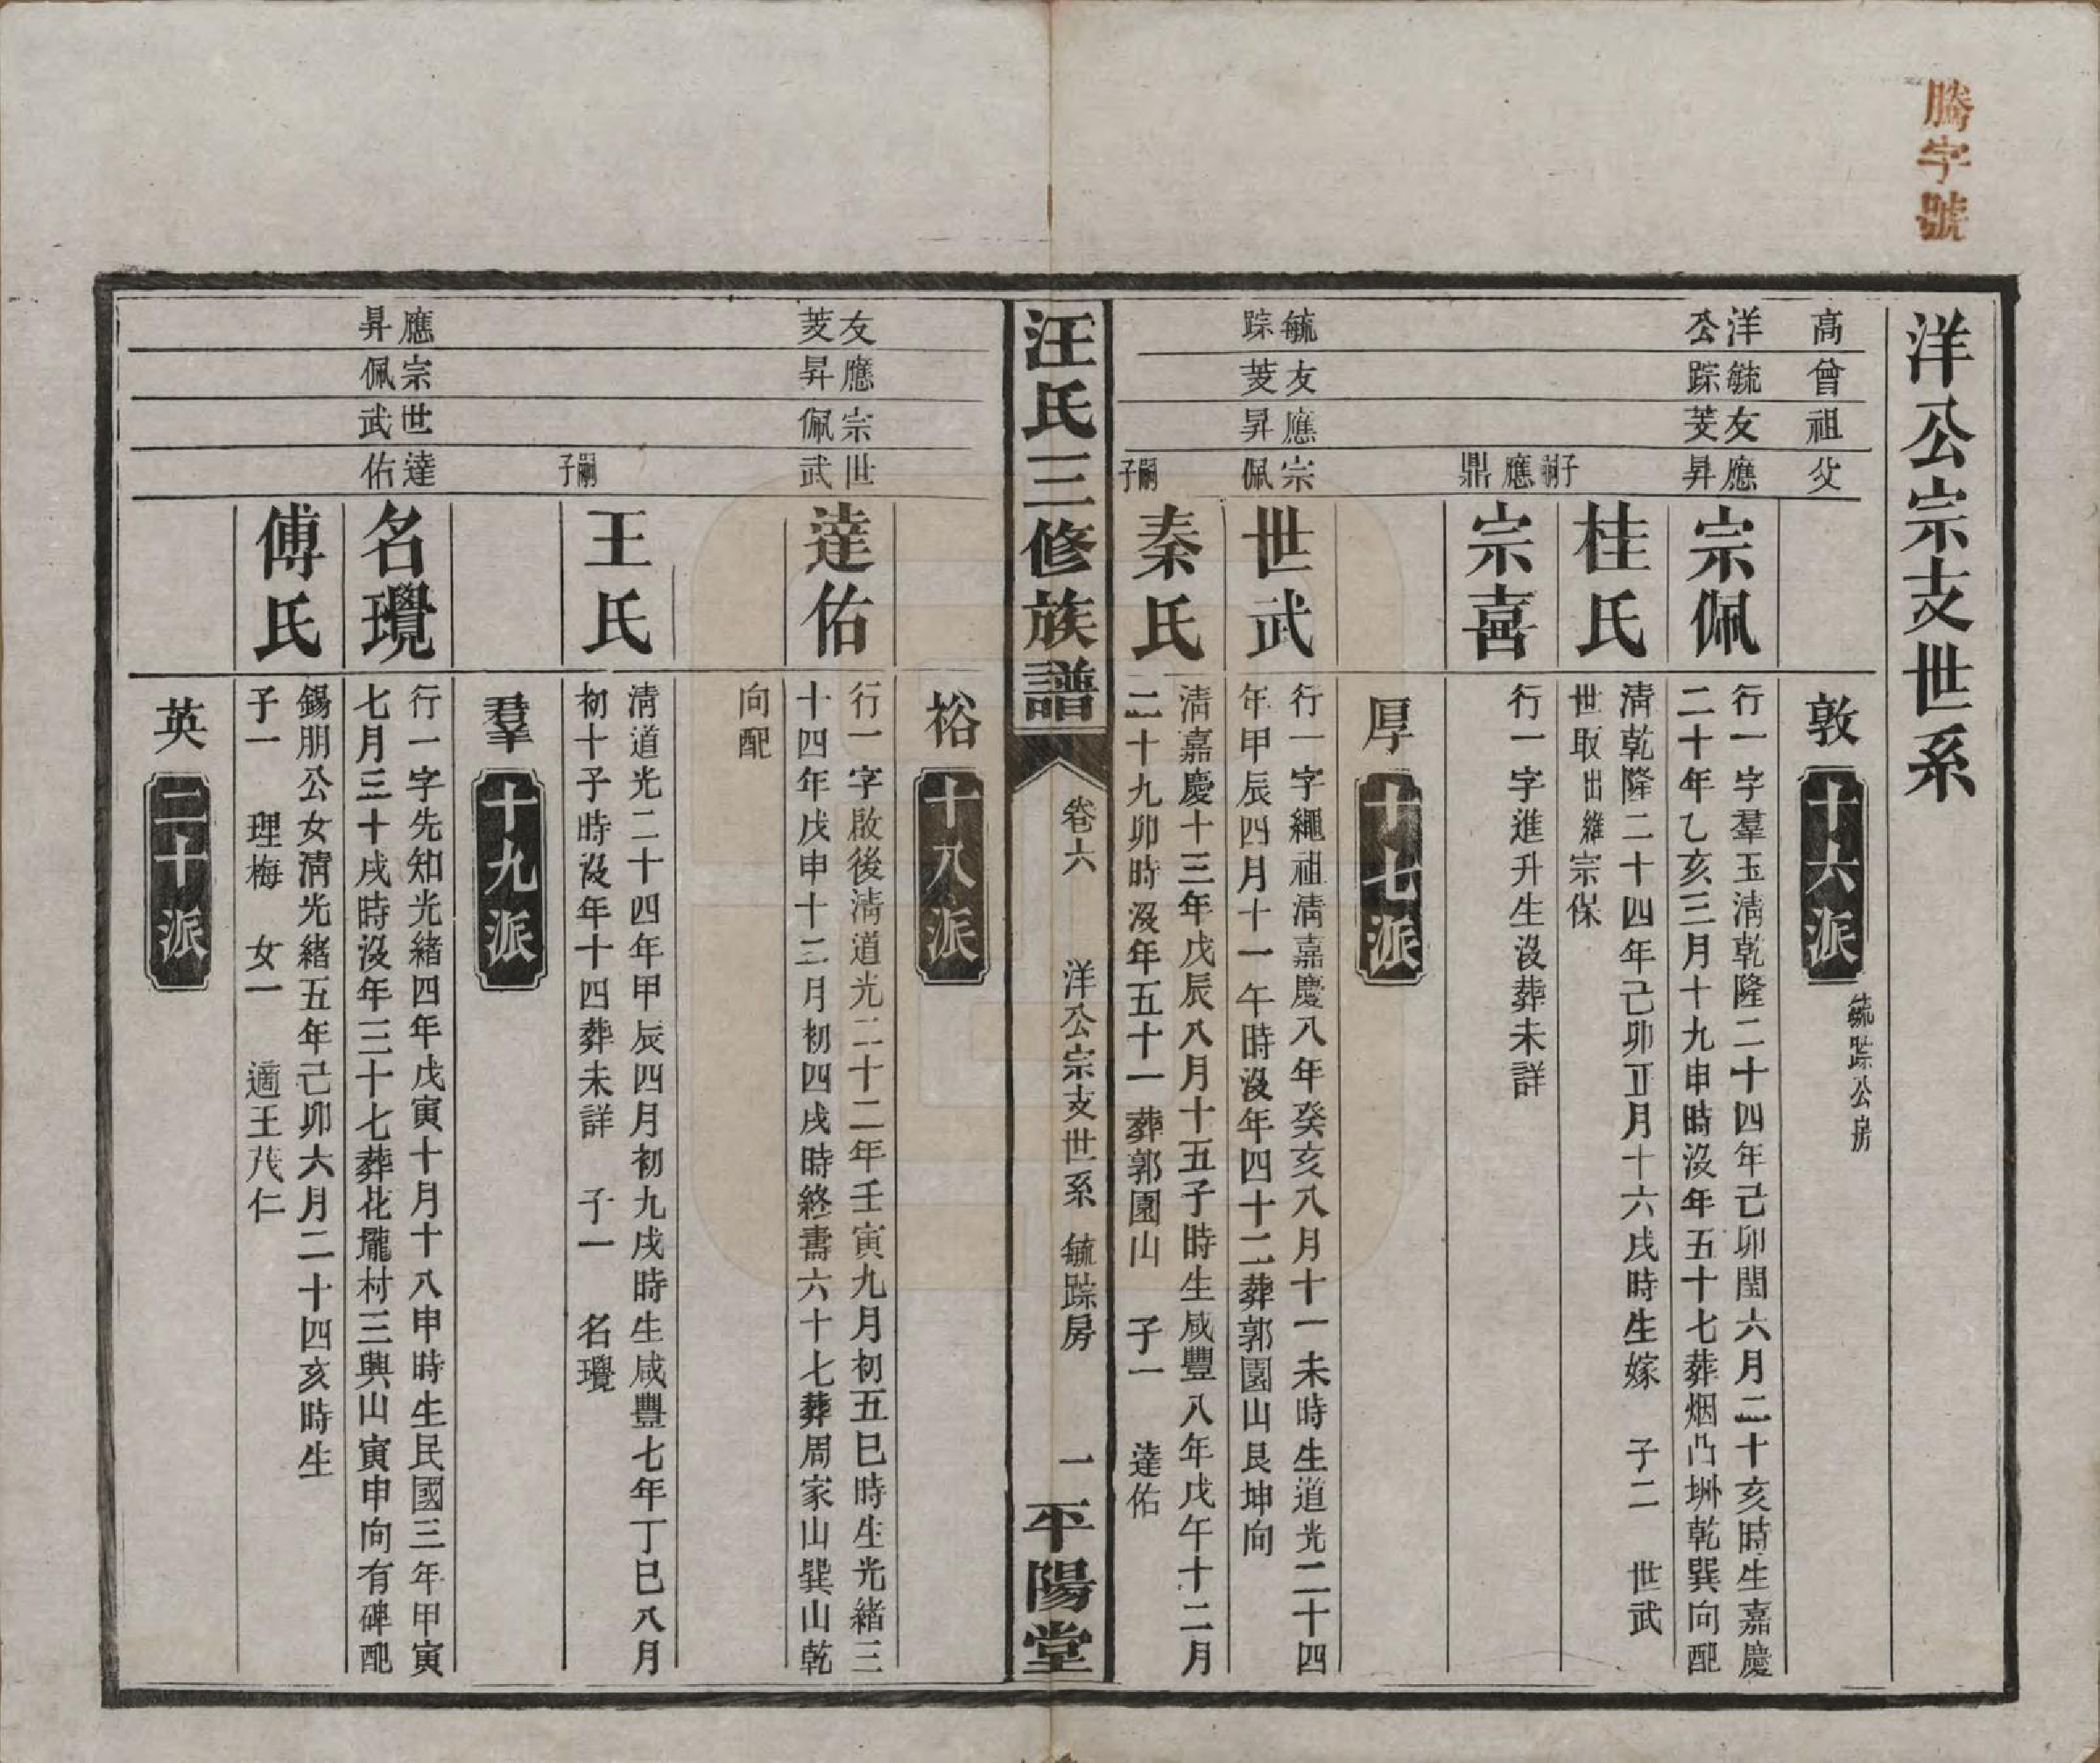 騰字號
洋公宗支世系
高 曾 祖 父
敦 十六派 毓踪公房
洋公 毓踪 友芰 應昇
宗佩
行一字羣玉清乾隆二十四年己卯閏六月二十亥時生嘉慶
二十年乙亥三月十九申時沒年五十七葬烟凸坰乾巽向配
桂氏
清乾隆二十四年己卯正月十六戌時生嫁 子二 世武
世取出繼宗保
應鼎嗣子
宗喜
行一字進升生沒葬未詳
厚 十七派
毓踪 友芰 應昇 宗佩
世武
行一字繩祖清嘉慶八年癸亥八月十一未時生道光二十四
年甲辰四月十一午時沒年四十二葬郭園山艮坤向
嗣子
秦氏
清嘉慶十三年戊辰八月十五子時生咸豐八年戊午十二月
二十九卯時沒年五十一葬郭園山 子一 達佑
汪氏三修族譜 卷六 洋公宗支世系 毓踪房 一 平陽堂
裕 十八派
友芰 應昇 宗佩 世武
達佑
行一字啟後清道光二十二年壬寅九月初五巳時生光緒三
十四年戊申十二月初四戌時終壽六十七葬周家山巽山乾
向配
嗣子
王氏
清道光二十四年甲辰四月初九戌時生咸豐七年丁巳八月
初十子時沒年十四葬未詳 子一 名璺
羣 十九派
應昇 宗佩 世武 達佑
名璺
行一字先知光緒四年戊寅十月十八申時生民國三年甲寅
七月三十戌時沒年三十七葬花壠村三興山寅申向有碑配
傅氏
錫朋公女清光緒五年己卯六月二十四亥時生
子一 理梅 女一 適王茂仁
英 二十派